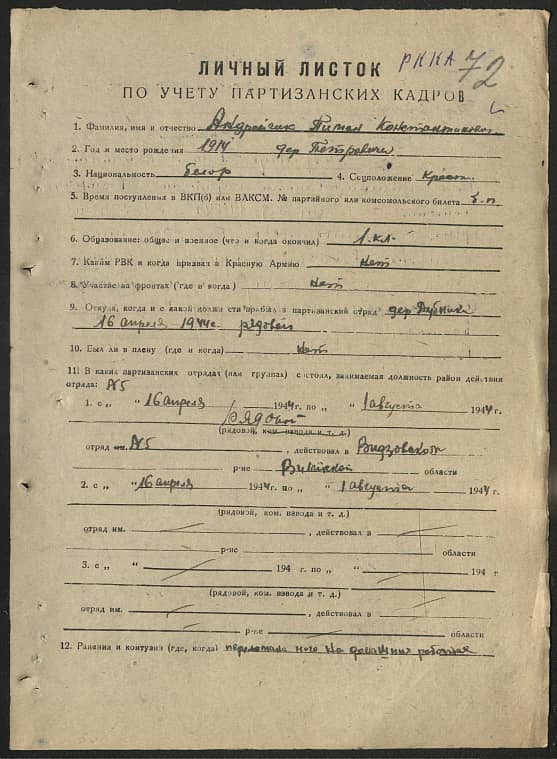 РККА 72
ЛИЧНЫЙ ЛИСТОК
ПО УЧЕТУ ПАРТИЗАНСКИХ КАДРОВ
1. Фамилия, имя и отчество Андрейчик Пимен Константинович
2. Год и место рождения 1914 дер Петровичи
3. Национальность белор 4. Соцположение Крест.
5. Время поступления в ВКП(б) или ВЛКСМ. № партийного или комсомольского билета б.п
6. Образование: общее и военное (что и когда окончил) 1 кл.
7. Каким РВК и когда призван в Красную Армию Нет
8. Участие на фронтах (где и когда) Нет
9. Откуда, когда и с какой должности прибыл в партизанский отряд дер Дубники
16 апреля 1944г. рядовой
10. Был ли в плену (где и когда) нет
11. В каких партизанских отрядах (или группах) состоял, занимаемая должность район действия
отряда: №5
1. с „ “ 16 апреля 1944 г. по „ “ 1 августа 1944 г.
рядовой
(рядовой, ком. взвода и т. д.)
отряд им. №5 , действовал в Видзовском
р-не Вилейской области
2. с „ “ 16 апреля 1944 г. по „ “ 1 августа 1944 г.
(рядовой, ком. взвода и т. д.)
отряд им. , действовал в
р-не области
3. с „ “ 194 г. по „ “ 194 г
(рядовой, ком. взвода и т. д.)
отряд им. , действовал в
р-не области
12. Ранения и контузии (где, когда) переломала нога на домашних работах